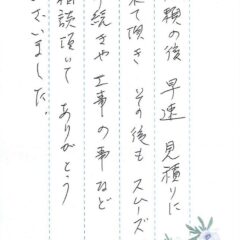 頼の後 早速 見積りに
来て頂き その後も スムーズ
手続きや工事の事など
相談頂いて ありがとう
ございました。